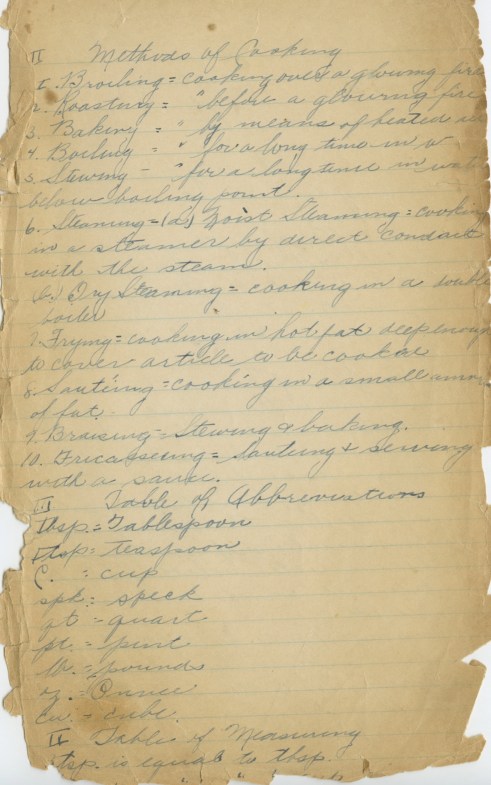 II Methods of Cooking
1. Broiling = cooking over a glowing fire
2. Roasting = " before a glowing fire
3. Baking = " by means of heated air
4. Boiling = " for a long time in w
5. Stewing - " for a long time in wat
below boiling point.
6. Steaming = (a) Moist Steaming = cooking
in a steamer by direct contact
with the steam.
(b.) Dry Steaming = cooking in a double
boiler
7. Frying = cooking in hot fat deep enough
to cover article to be cooked
8. Sautéing = cooking in a small amou
of fat.
9. Braising = Stewing & baking.
10. Fricasseeing = Sauteing & serving
with a sauce.
III Table of Abbreviations
tbsp. = Tablespoon
tsp. = teaspoon
C. = cup
spk. = speck
qt = quart
pt. = pint
lb. = pounds
oz. = Ounce
cu. = cube.
Table of Measuring
tsp. is equal to tbsp.